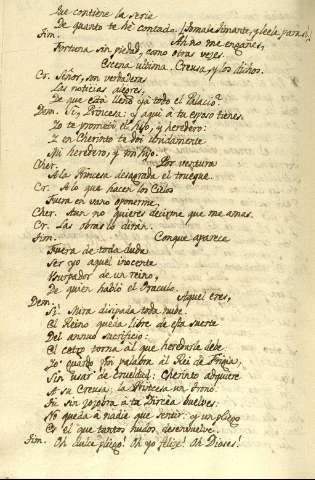 Que contiene la serie
De quanto te hé contado. (Toma el Timante, y leela para sí.)
Tim. Ah no me engañes,
Fortuna sin piedad, como otras vezes.
Escena ultima. Creusa, y los dichos.
Cr. Señor, son verdaderas
Las noticias alegres,
De que está lleno ya todo el Palacio?
Dem. Si, Princesa: y aqui à tu esposo tienes.
Yo te prometi el hijo, y heredero:
Y en Cherinto te doi unidamente
Mi heredero, y mi hijo.
Cher. Por ventura
A la Princesa desagrada el trueque.
Cr. A lo que hacen los Cielos
Fuera en vano oponerme.
Cher. Aun no quieres decirme que me amas.
Cr. Las obras lo dirán.
Tim. Conque aparece
Fuera de toda duda
Ser yo aquel inocente
Usurpador de un reino,
De quien habló el Oraculo.
Dem. Aquel eres,
Si: Mira disipada toda nube.
El Reino queda libre de esta suerte
Del annuo sacrificio:
El cetro torna al que heredarle debe
Yo guardo mi palabra al Rei de Frigia,
Sin usar de crueldad: Cherinto adquiere
A su Creusa: la Princesa un trono:
Tu sin zozobra à tu Dircéa buelves:
No queda à nadie que sentir: y un pliego
Es el que tantos nudos desenvuelve.
Tim. Oh dulce pliego! Oh yo feliz! Oh Dioses!